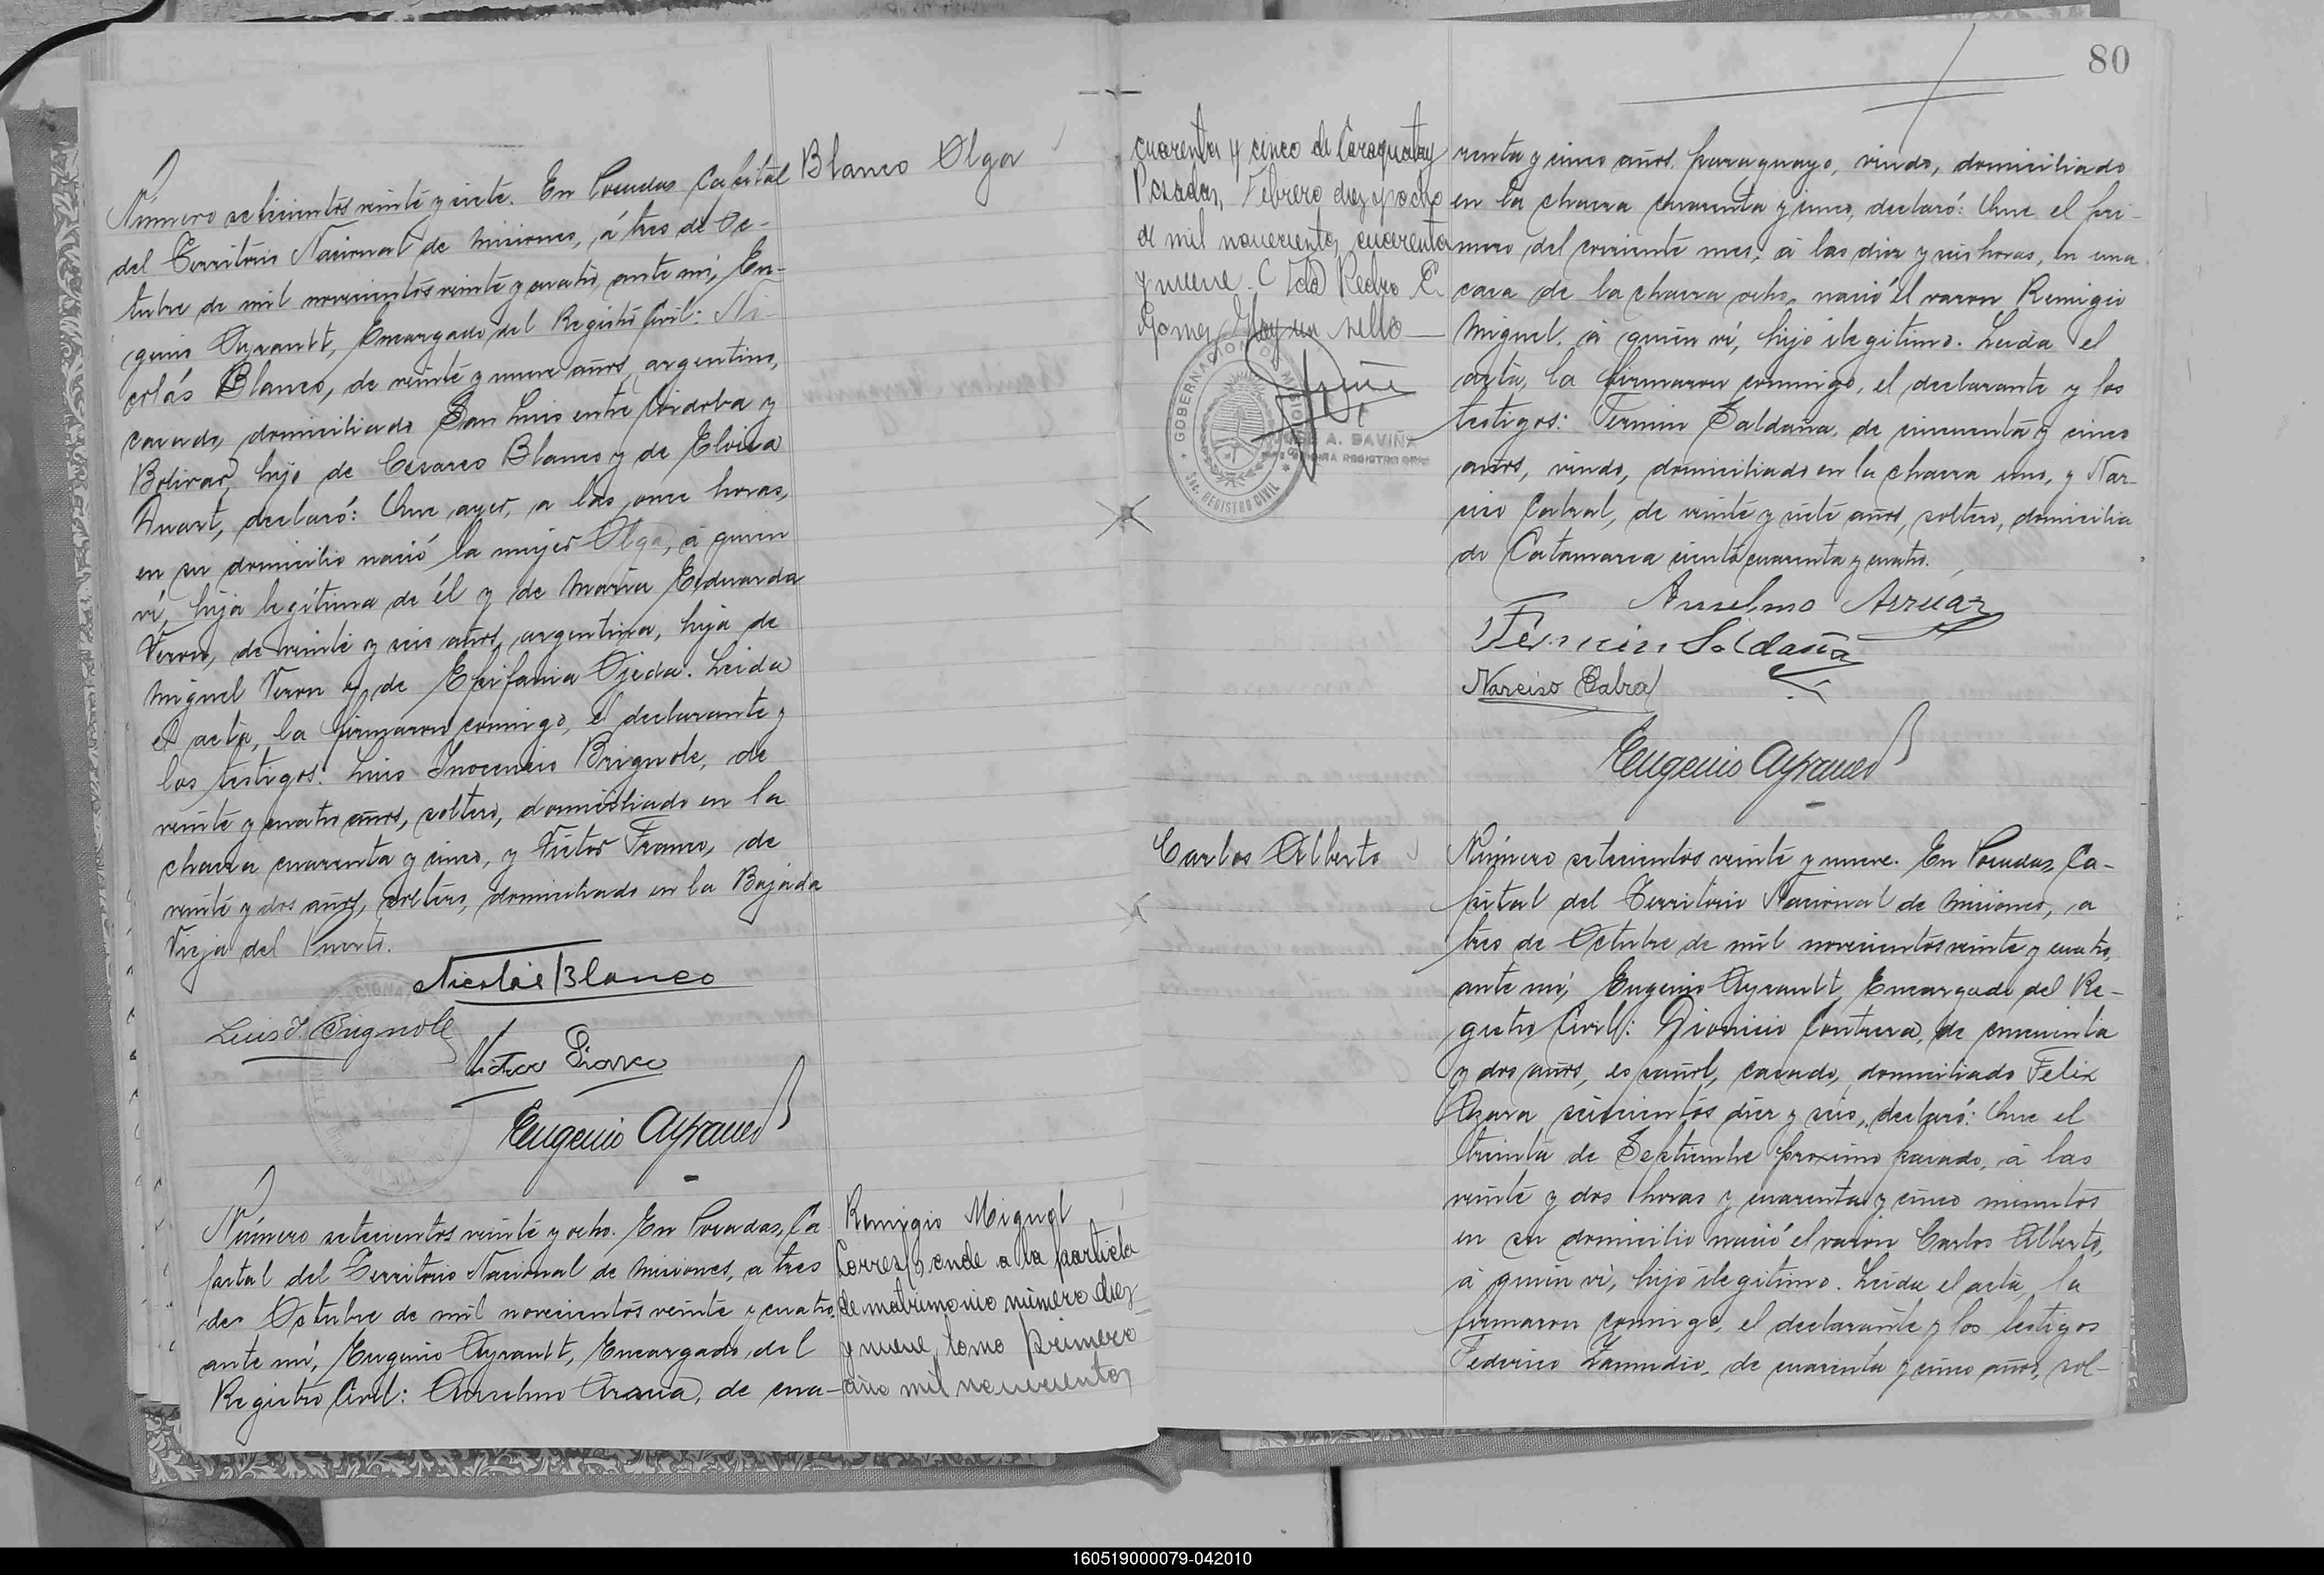 Blanco Olga
Número setecientos veinte y siete. En Posadas Capital
del Territorio Nacional de Misiones, á tres de Oc-
tubre de mil novecientos veinte y cuatro, ante mí, Eu-
genio Ayrault, Encargado del Registro Civil: Ni-
colás Blanco, de veinte y nueve años, argentino,
casado, domiciliado San Luis entre Córdoba y
Bolivar, hijo de Cesareo Blanco y de Elvira
Duart, declaró: Que ayer, a las once horas,
en su domicilio nació la mujer Olga, á quien
ví, hija legítima de él y de Maria Eduarda
Veron, de veinte y seis años, argentina, hija de
Miguel Veron y de Epifania Ojeda. Leida
el acta, la firmaron conmigo, el declarante y
los testigos: Luis Inocencio Brignole, de
veinte y cuatro años, soltero, domiciliado en la
chacra cuarenta y cinco, y Victor Franco, de
veinte y dos años, soltero, domiciliado en la Bajada
Vieja del Puerto.
Nicolás Blanco
Luis I. Brignole
Victor Franco
Eugenio Ayrault
Remigio Miguel
Corresponde a la partida
de matrimonio número diez
y nueve tomo primero
año mil novecientos
Número setecientos veinte y ocho. En Posadas, Ca-
pital del Territorio Nacional de Misiones, a tres
de Octubre de mil novecientos veinte y cuatro,
ante mí, Eugenio Ayrault, Encargado del
Registro Civil: Anselmo Arrua, de cua-
80
cuarenta y cinco de Caraguatay
Posadas, Febrero diez y ocho
de mil novecientos cuarenta
y nueve. Fdo Pedro E.
Gomez Hay un sello
GOBERNACION DE MISIONES
SEC. REGISTRO CIVIL
JOSE A. DAVIÑA
renta y cinco años, paraguayo, viudo, domiciliado
en la chacra cuarenta y cinco, declaró: Que el pri-
mero del corriente mes, á las diez y seis horas, en una
casa de la chacra ocho, nació el varon Remigio
Miguel, á quien ví, hijo ilegitimo. Leida el
acta, la firmaron conmigo, el declarante y los
testigos: Fermin Saldaña, de cincuenta y cinco
años, viudo, domiciliado en la chacra uno, y Nar-
ciso Cabral, de veinte y siete años, soltero, domicilia
do Catamarca ciento cuarenta y cuatro.
Anselmo Arrúa
Fermin Saldaña
Narciso Cabral
Eugenio Ayrault
Carlos Alberto
Número setecientos veinte y nueve. En Posadas, Ca-
pital del Territorio Nacional de Misiones, a
tres de Octubre de mil novecientos veinte y cuatro,
ante mí, Eugenio Ayrault, Encargado del Re-
gistro Civil: Dionicio Contrera, de cincuenta
y dos años, español, casado, domiciliado Felix
Azara seiscientos diez y seis, declaró: Que el
treinta de Septiembre próximo pasado, á las
veinte y dos horas y cuarenta y cinco minutos
en su domicilio nació el varon Carlos Alberto,
á quien ví, hijo ilegitimo. Leida el acta, la
firmaron conmigo, el declarante y los testigos
Federico Zamudio, de cuarenta y cinco años, sol-
160519000079-042010